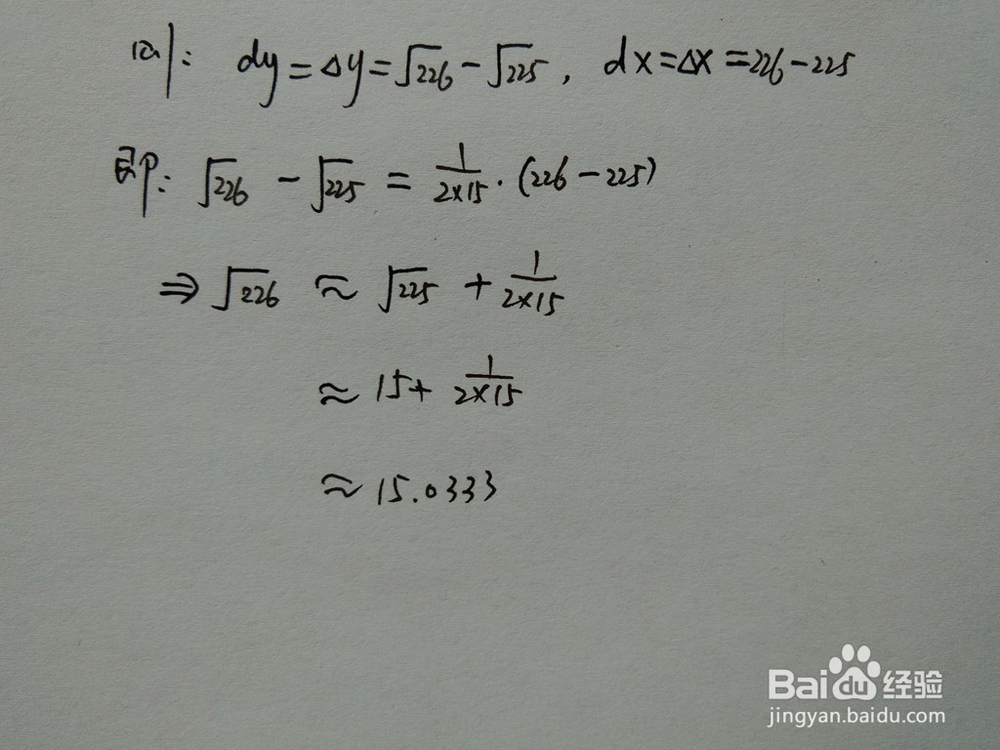 则: dy=Δy=√226-√225, dx=Δx=226-225
即: √226 - √225 = 1/(2×15)·(226-225)
⇒ √226 ≈ √225 + 1/(2×15)
≈ 15+ 1/(2×15)
≈ 15.0333
Baidu经验
jingyan.baidu.com